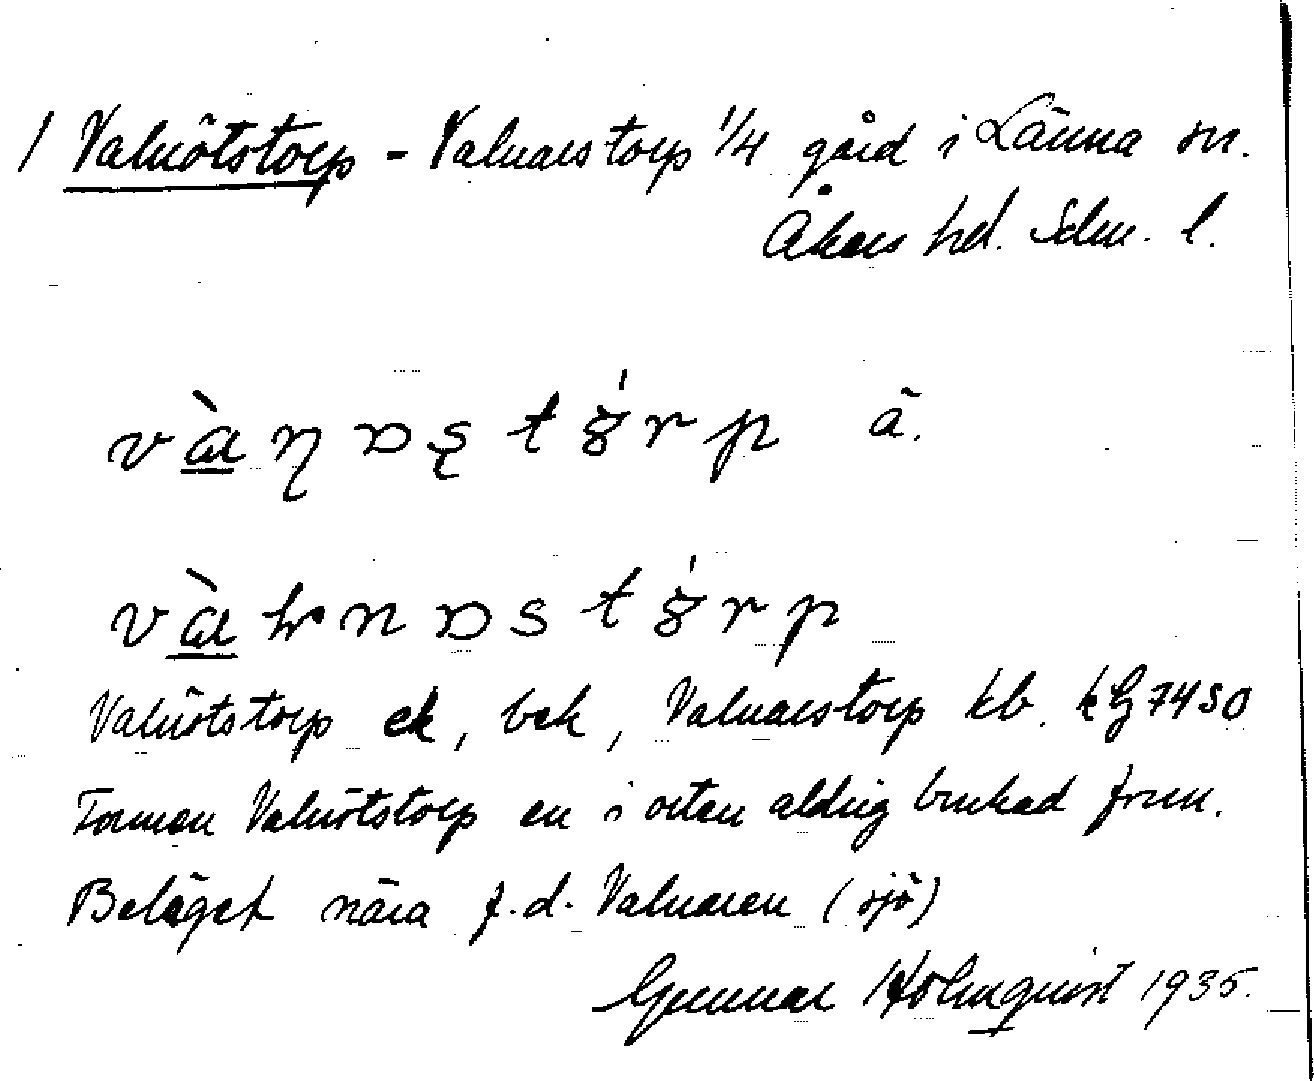 1 Valnötstorp - Valnarstorp 1/4 gård i Länna sn.
Åkers hd. Sdm. l.
v<u>à</u>ꞃɒs̨tǿrp ā.
v<u>à</u>lnɒstǿrp
Valnötstorp ek, bek, Valnarstorp kb.
Formen Valnötstorp en i orten aldrig brukad form.
Beläget nära f.d. Valnaren (sjö)
Gunnar Holmquist 1935.